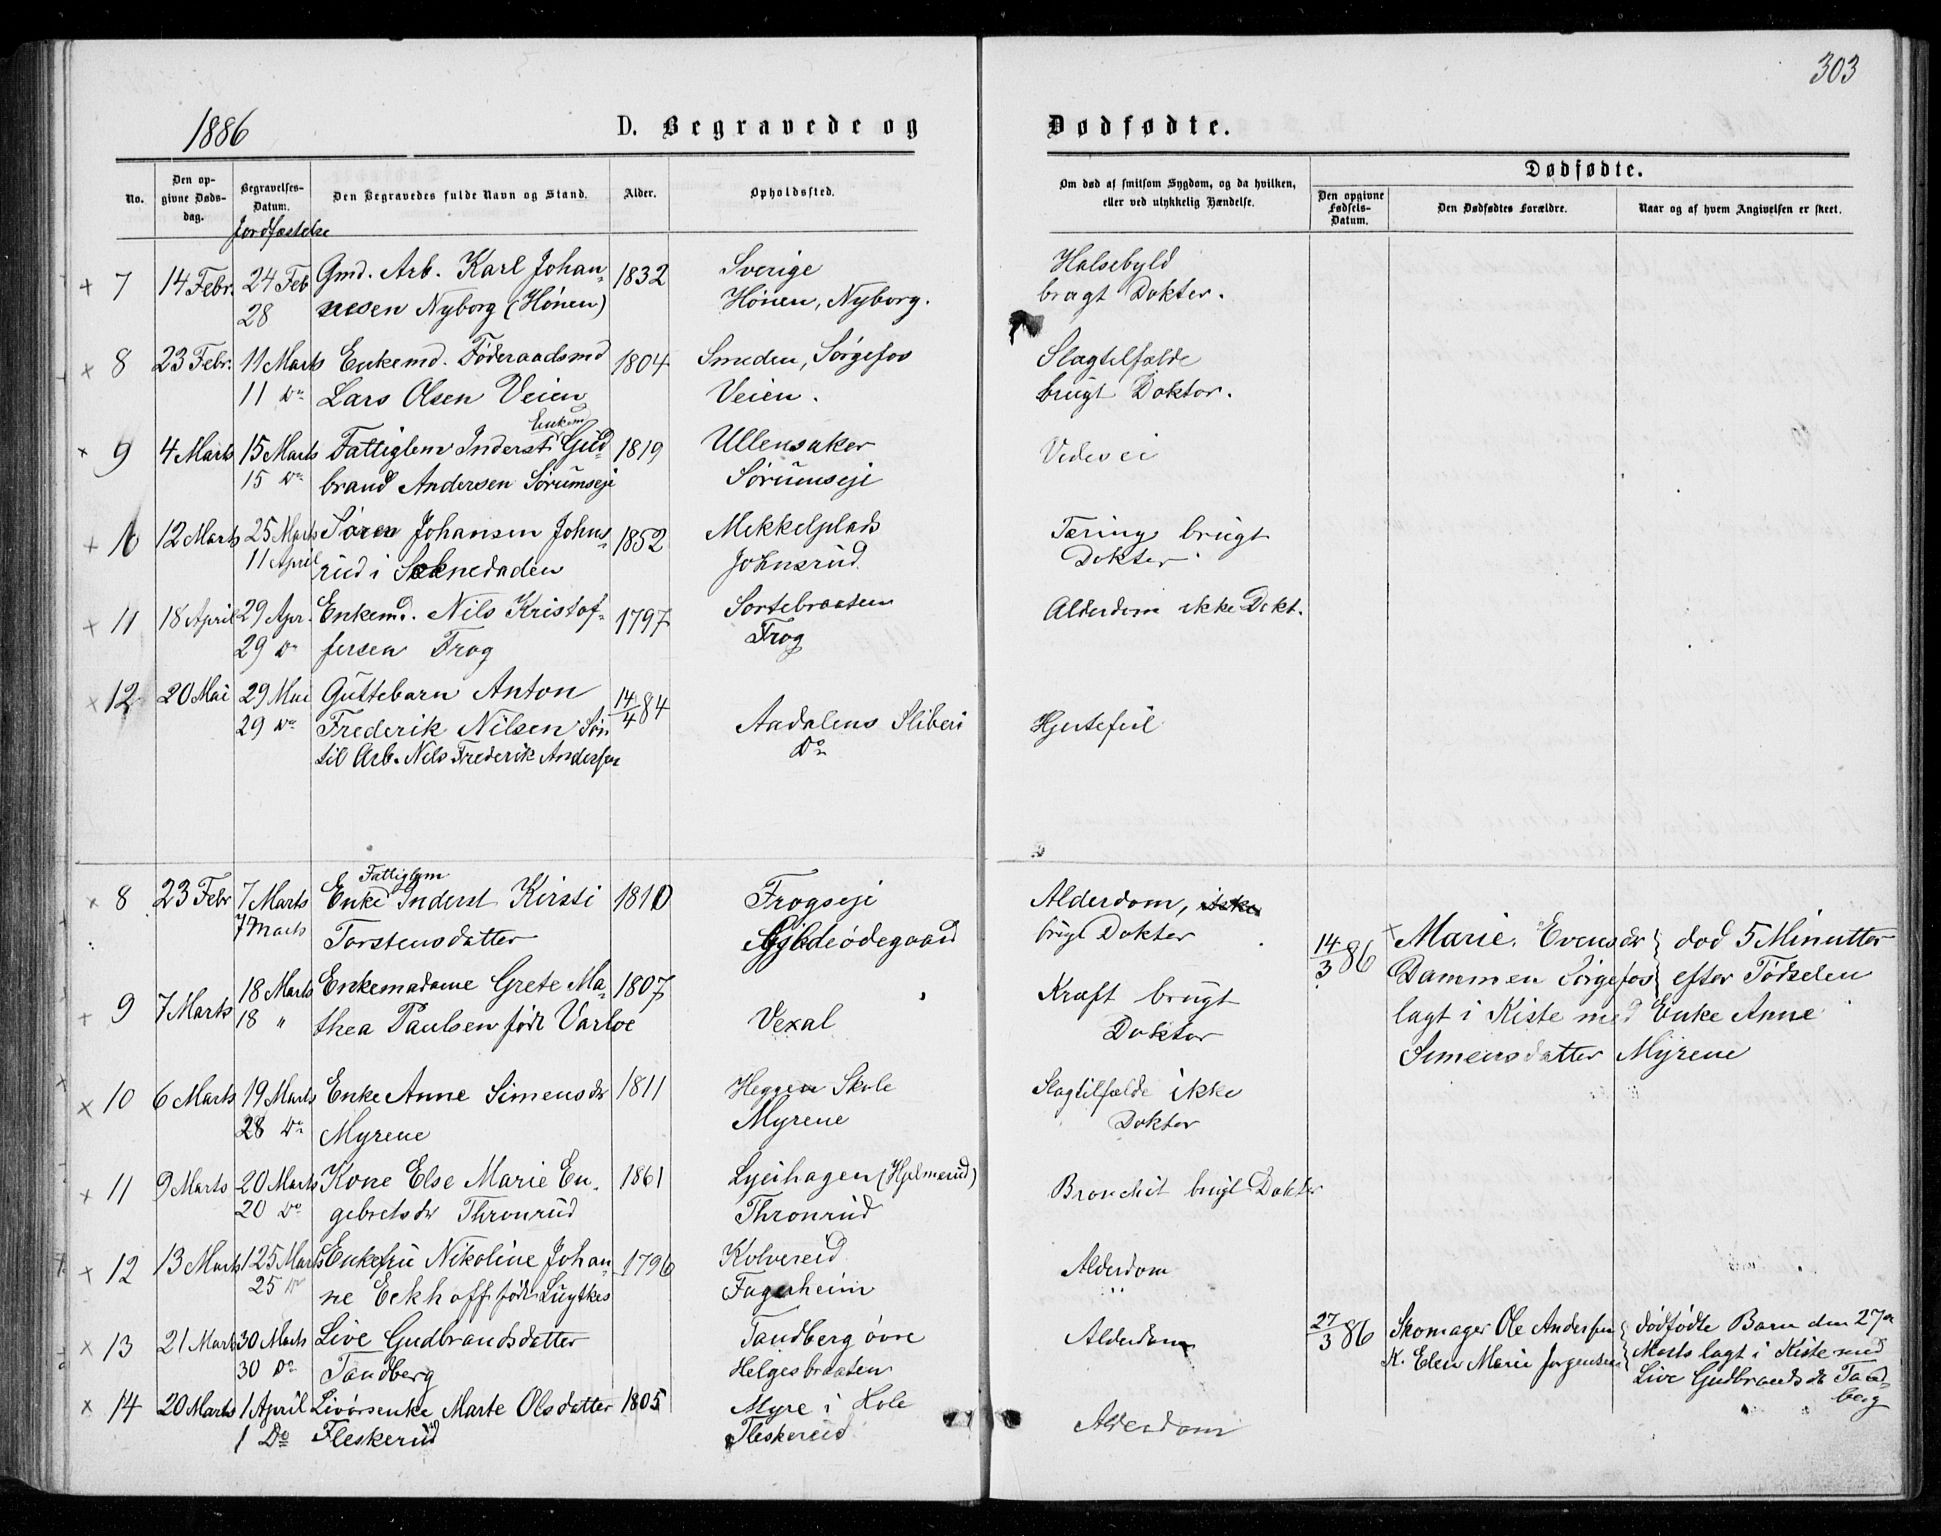 303
1886
D. Begravede og Dødfødte.
No.
Den opgivne Døds-dag.
Begravelses-Datum.
Jordfæstelse
Den Begravedes fulde Navn og Stand.
Alder.
Opholdssted.
Om død af smitsom Sygdom, og da hvilken, eller ved ulykkelig Hændelse.
Dødfødte.
Den opgivne Fødsels-Datum.
Den Dødfødtes Forældre.
Naar og af hvem Angivelsen er skeet.
7 14 Febr. 24 Feb Gmd. Arb. Karl Johan- 1832 Sverige Halsebyld
28 nesen Nyborg (Hönen) Hönen, Nyborg. bragt Dokter.
8 23 Febr. 11 Marts Enkemd. Föderaadsmd 1804 Smeden, Sörgefos Slagtilfælde
11 Do Lars Olsen Veien Veien. brugt Doktor.
Enkem
9 4 Marts 15 Marts Fattiglem Inderst Gud- 1819 Ullensaker
15 Do brand Andersen Sörumseje Sörumseje
10 12 Marts 25 Marts Sören Johansen Johns- 1852 Mekkelplads Tæring brugt
11 April rud i Soknedalen Johnsrud Dokter
11 18 April 29 Apr. Enkemd. Nils Kristof- 1797 Sortebraaten Alderdom ikke Dokt.
29 Do fersen Frog Frog
12 20 Mai 29 Mai Guttebarn Anton 14/4 84
29 Do Frederik Nilsen Sön Aadalens Sliberi Hjertefeil
til Arb. Nels Frederik Andersen Do
Fattiglem
8 23 Febr 7 Marts Enke Inderst Kirsti 1810 Frogseje Alderdom, ikke
7 Marts Torstensdatter Gjeldeödegaard brugt Dokter
14/3 86 Marie Evensdr } död 5 Minutter
Dammen Sörgefos } efter Födselen
lagt i Kiste med Enke Anne
Simensdatter Myrene
9 7 Marts 18 Marts Enkemadame Grete Ma- 1807 Kræft brugt
18 " thea Paulsen född Varloe Vexal Doktor
10 6 Marts 19 Marts Enke Anne Simensdr 1811 Heggen Skole Slagtilfælde ikke
28 Do Myrene Myrene Doktor
11 9 Marts 20 Marts Kone Else Marie En- 1861 Lyeihagen (Hjelmerud) Bronchit brugt Dokter
20 Do gebretsdr Thronrud Thronrud
12 13 Marts 25 Marts Enkefru Nikoline Johan- 1796 Kolvereid Alderdom
25 Do ne Eckhoff född Luytkes Fagerheim
13 21 Marts 30 Marts Live Gudbrandsdatter Tandberg övre Alderdom
30 Do Tandberg Helgesbraaten
27/3 86 Skomager Ole Andersen } dödfödte Barn den 27de
K. Elen Marie Jorgensen } Marts lagt i Kiste med
Live Gudbrandsdr Tand-
berg
14 20 Marts 1 April Livörsenke Marte Olsdatter 1805 Myre i Hole Alderdom
1 Do Fleskerud Fleskerud